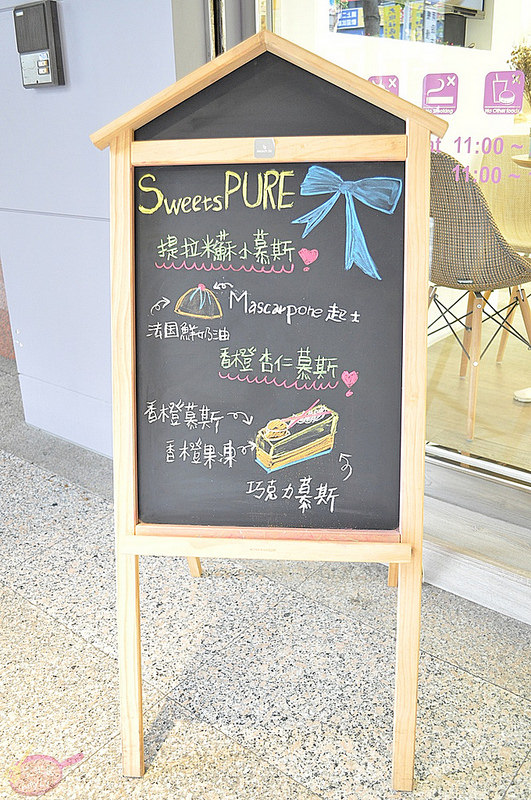 Sweets PURE
提拉米蘇小慕斯
Mascarpone 起士
法国鮮奶油
香橙杏仁慕斯
香橙慕斯
香橙果凍
巧克力慕斯
11:00 ~
11:00 ~